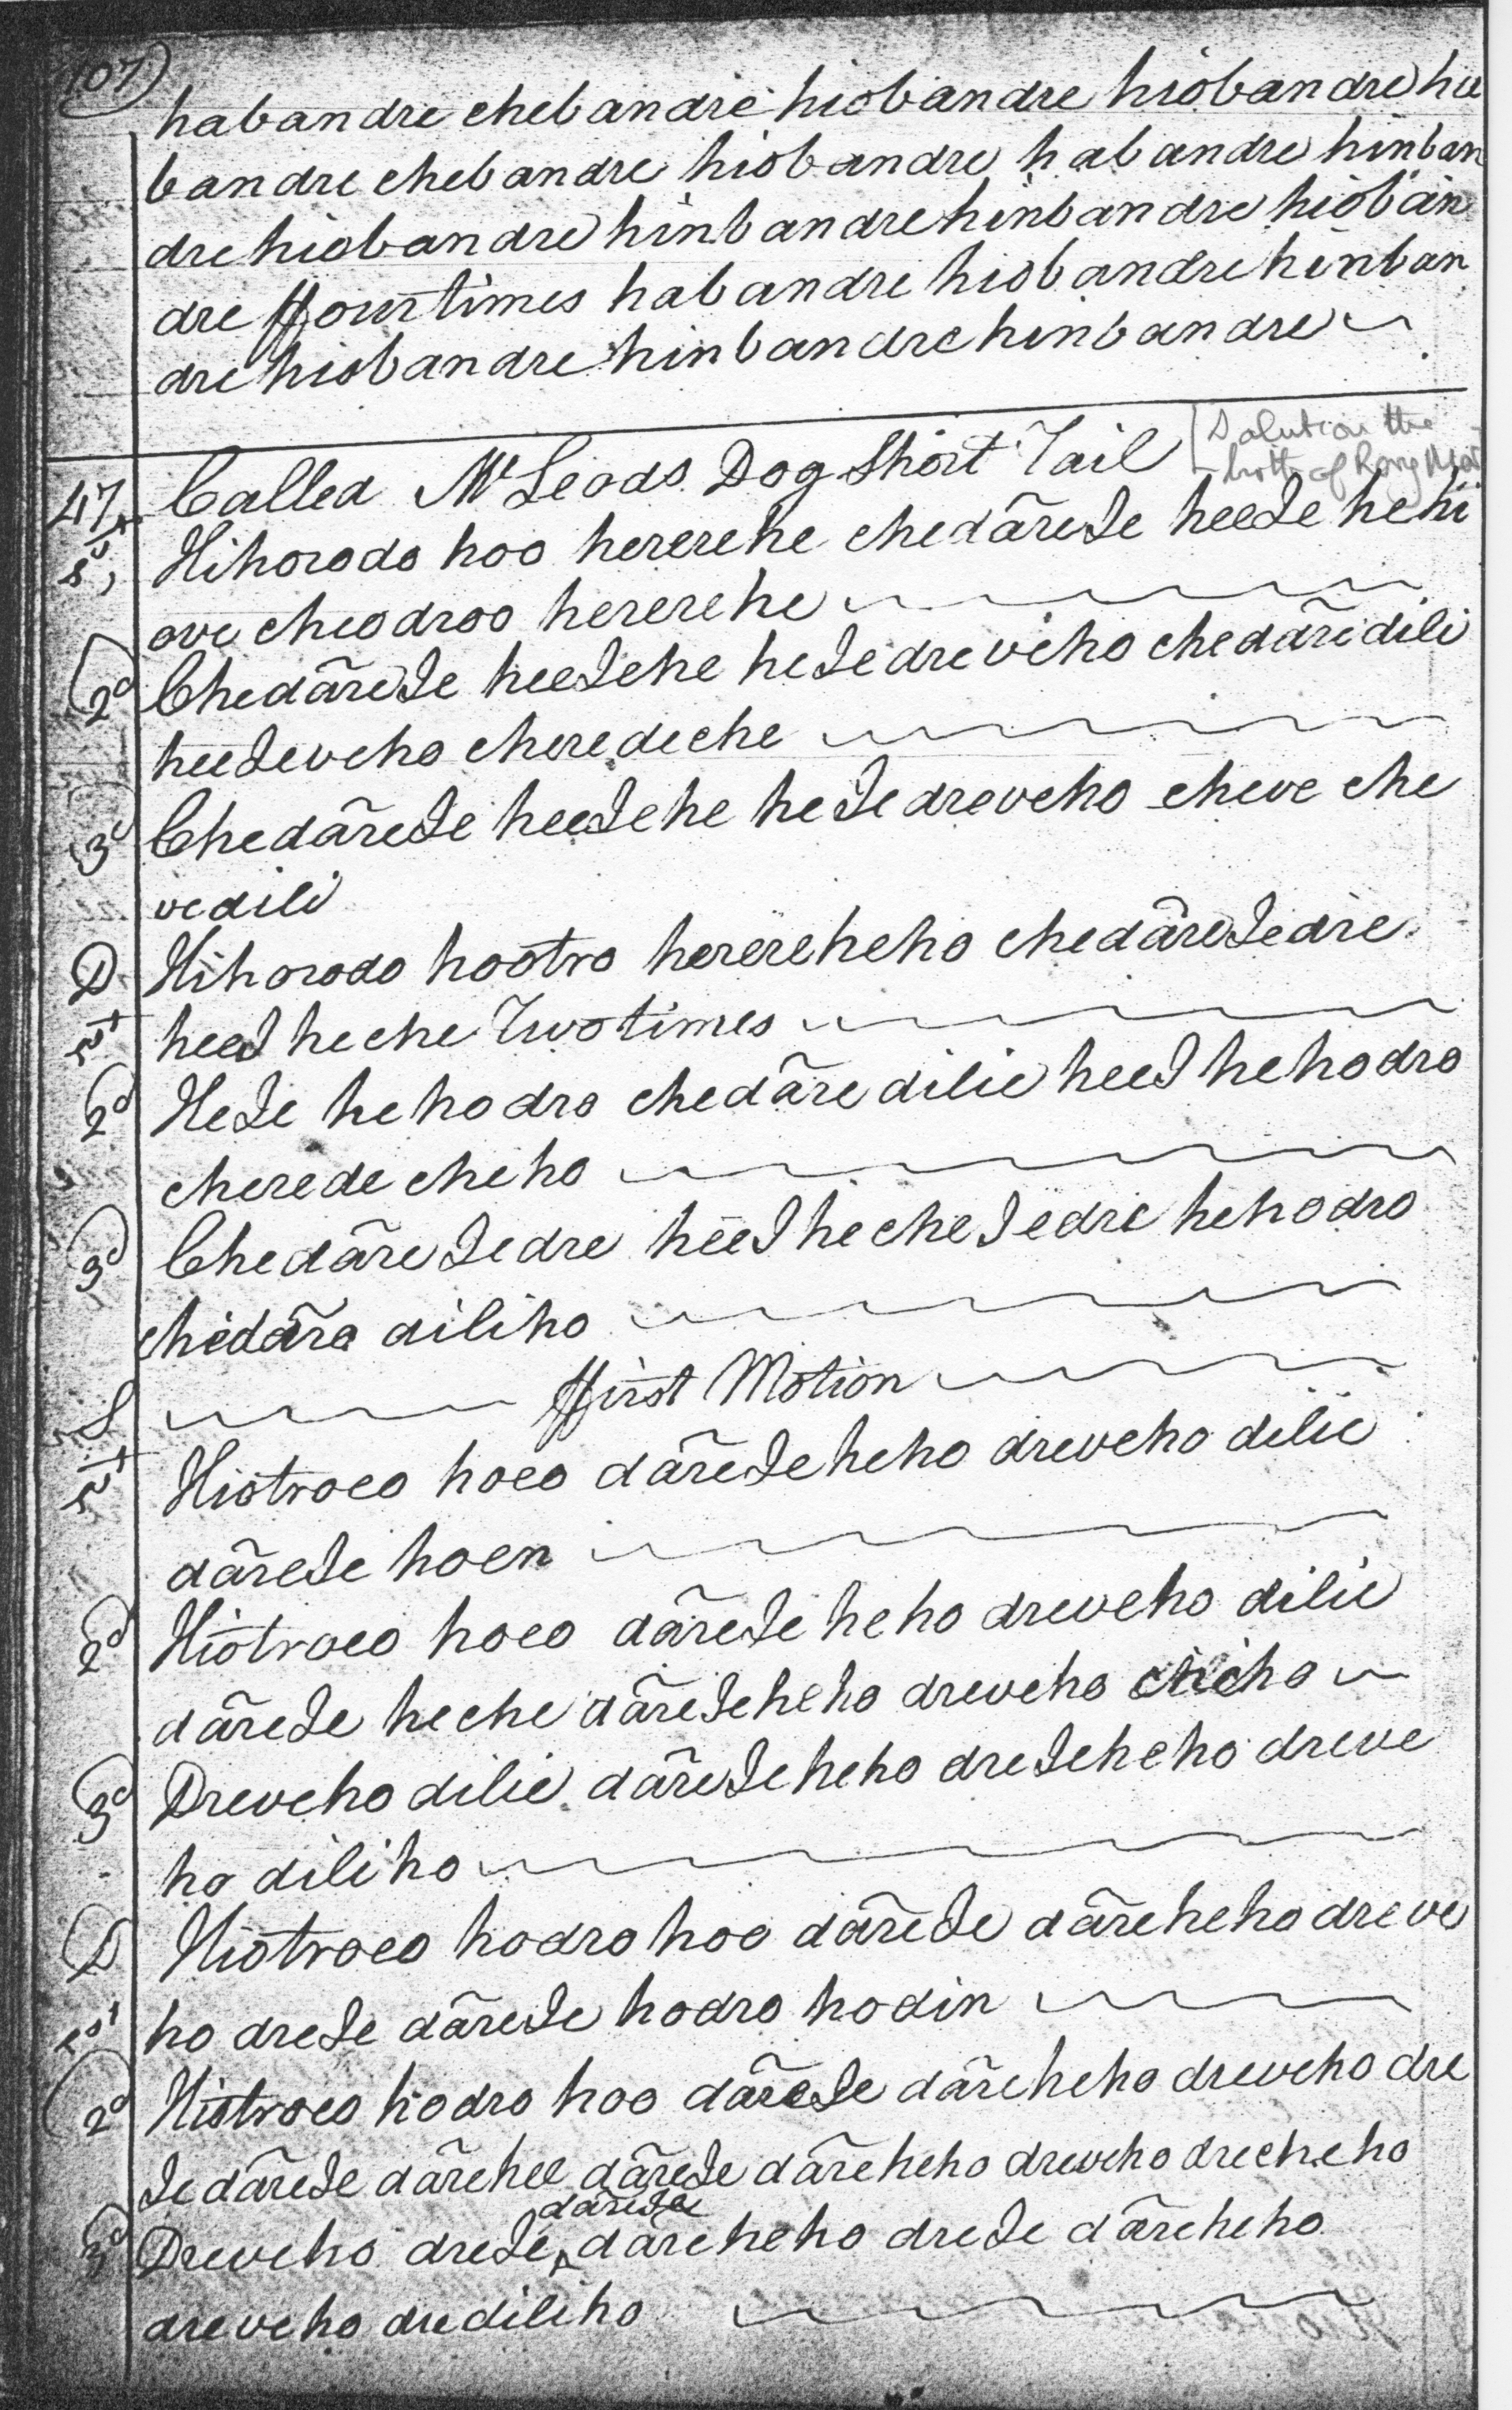 107
habandre chebandre hiobandre hiobandre hie
bandre chebandre hiobandre habandre hinban
drehiobandre hinbandrehinbandre hioban
dre ffourtimes habandre hiobandre hinban
dre hiobandre hinbandre hinbandre
47 Called McLeods Dog Short Tail
1st Hihorodo hoo hererehe chedāreIe heeIe he hi
ove cheodroo hererehe
2d ChedāreIe heeIehe heIedreveho chedāredili
heeIeveho cheredeche
3d ChedāreIe heeIehe heIedreveho cheve che
vedili
D Hihorodo hootro herereheho chedāreIedre
1st heeI heche Twotimes
2d HeIe hehodro chedāredilie heeI hehodro
cherede cheho
3d ChedāreIedre heeI hecheIedre hehodro
chedāre diliho
S ffirst Motion
1st Hiotroeo hoeo dāreIeheho dreveho dilie
dāreIe hoen
2d Hiotroeo hoeo dāreIe heho dreveho dilie
dāreIe heche dāreIeheho dreveho cheho
3d Dreveho dilie dāreIeheho dreIeheho dreve
ho diliho
D Hiotroeo hodro hoo dāreIe dāreheho dreve
1st ho dreIe dāreIe hodro hodin
2d Hiotroeo hodro hoo dāreIe dāreheho dreveho dre
IedāreIe dārehee dāreIe dāreheho dreveho drecheho
dāreIe
3d Dreveho dreIe dāreheho dreIe dāreheho
dreveho drediliho